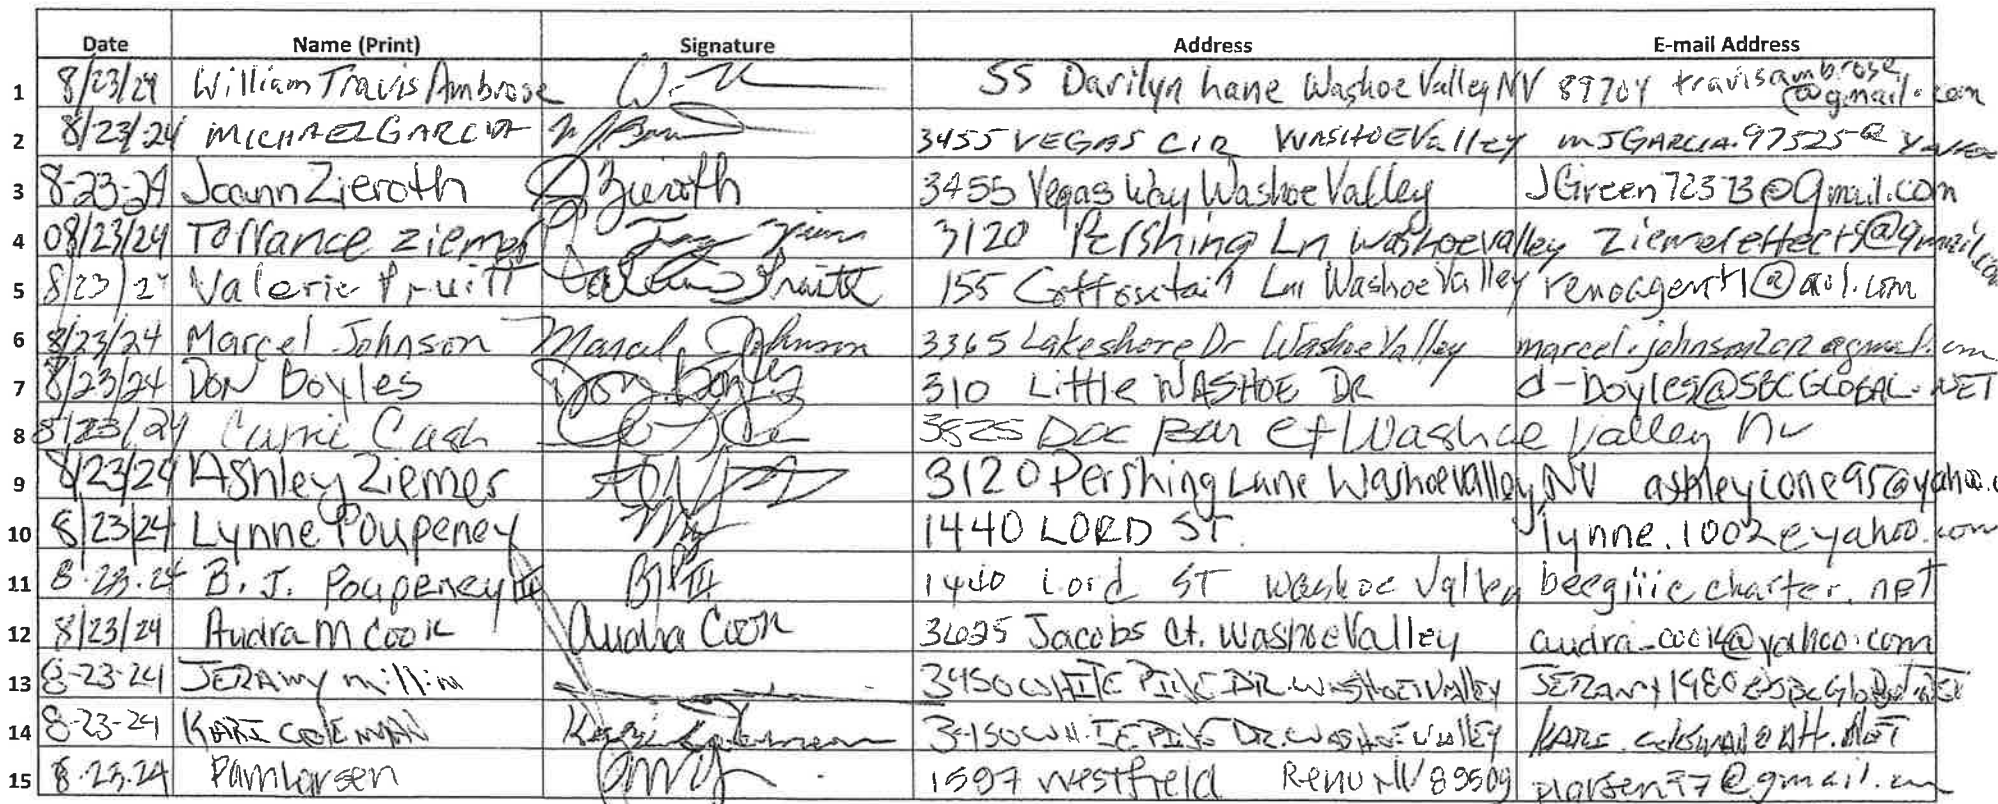 Date Name (Print) Signature Address E-mail Address
1 8/23/24 William Travis Ambrose 55 Darilyn Lane Washoe Valley NV 89704 travisambrose@gmail.com
2 8/23/24 MICHAEL GARCIA 3455 VEGAS CIR WASHOE Valley mJGARCIA.97525@
3 8-23-24 Joann Zieroth JZieroth 3455 Vegas Way Washoe Valley JGreen72373@gmail.com
4 08/23/24 Torrance Ziemer 3120 Pershing Ln Washoe valley
5 8/23/24 Valerie Pruitt Valerie Pruitt 155 Ln Washoe Valley renoagent1@aol.com
6 8/23/24 Marcel Johnson Marcel Johnson 3365 Lakeshore Dr Washoe Valley
7 8/23/24 DON Boyles Don Boyles 310 Little WASHOE DR d-Boyles@SBCGLOBAL.NET
8 8/23/24 Carrie Cash 3525 Doc Bar Ct Washoe Valley NV
9 8/23/24 Ashley Ziemer 3120 Pershing Lane Washoe Valley NV
10 8/23/24 Lynne Poupeney 1440 LORD ST. lynne.1002@yahoo.com
11 8.23.24 B. J. Poupeney III BJP III 1440 Lord ST Washoe Valley
12 8/23/24 Audra M Cook Audra Cook 3625 Jacobs Ct. Washoe Valley audra_cook@yahoo.com
13 8-23-24 JERAMY millim DR. WASHOE Valley
14 8-23-24 KARI COLEMAN Kari Coleman DR. WASHOE VALLEY
15 8.23.24 Pam Larsen 1597 Westfield Reno NV 89509 plarsen97@gmail.com